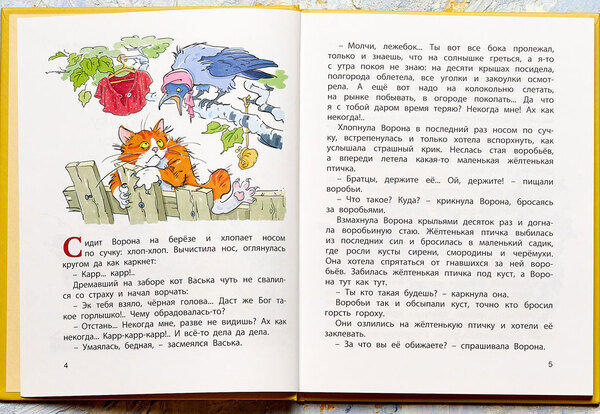 Сидит Ворона на берёзе и хлопает носом
по сучку: хлоп-хлоп. Вычистила нос, оглянулась
кругом да как каркнет:
– Карр... карр!..
Дремавший на заборе кот Васька чуть не свалил-
ся со страху и начал ворчать:
– Эк тебя взяло, чёрная голова... Даст же Бог та-
кое горлышко!.. Чему обрадовалась-то?
– Отстань... Некогда мне, разве не видишь? Ах как
некогда... Карр-карр-карр!.. И всё-то дела да дела.
– Умаялась, бедная, – засмеялся Васька.
4
– Молчи, лежебок... Ты вот все бока пролежал,
только и знаешь, что на солнышке греться, а я-то
с утра покоя не знаю: на десяти крышах посидела,
полгорода облетела, все уголки и закоулки осмот-
рела. А ещё вот надо на колокольню слетать,
на рынке побывать, в огороде покопать... Да что
я с тобой даром время теряю? Некогда мне! Ах как
некогда!..
Хлопнула Ворона в последний раз носом по суч-
ку, встрепенулась и только хотела вспорхнуть, как
услышала страшный крик. Неслась стая воробьёв,
а впереди летела какая-то маленькая жёлтенькая
птичка.
– Братцы, держите её... Ой, держите! – пищали
воробьи.
– Что такое? Куда? – крикнула Ворона, бросаясь
за воробьями.
Взмахнула Ворона крыльями десяток раз и догна-
ла воробьиную стаю. Жёлтенькая птичка выбилась
из последних сил и бросилась в маленький садик,
где росли кусты сирени, смородины и черёмухи.
Она хотела спрятаться от гнавшихся за ней воро-
бьёв. Забилась жёлтенькая птичка под куст, а Воро-
на тут как тут.
– Ты кто такая будешь? – каркнула она.
Воробьи так и обсыпали куст, точно кто бросил
горсть гороху.
Они озлились на жёлтенькую птичку и хотели её
заклевать.
– За что вы её обижаете? – спрашивала Ворона.
5